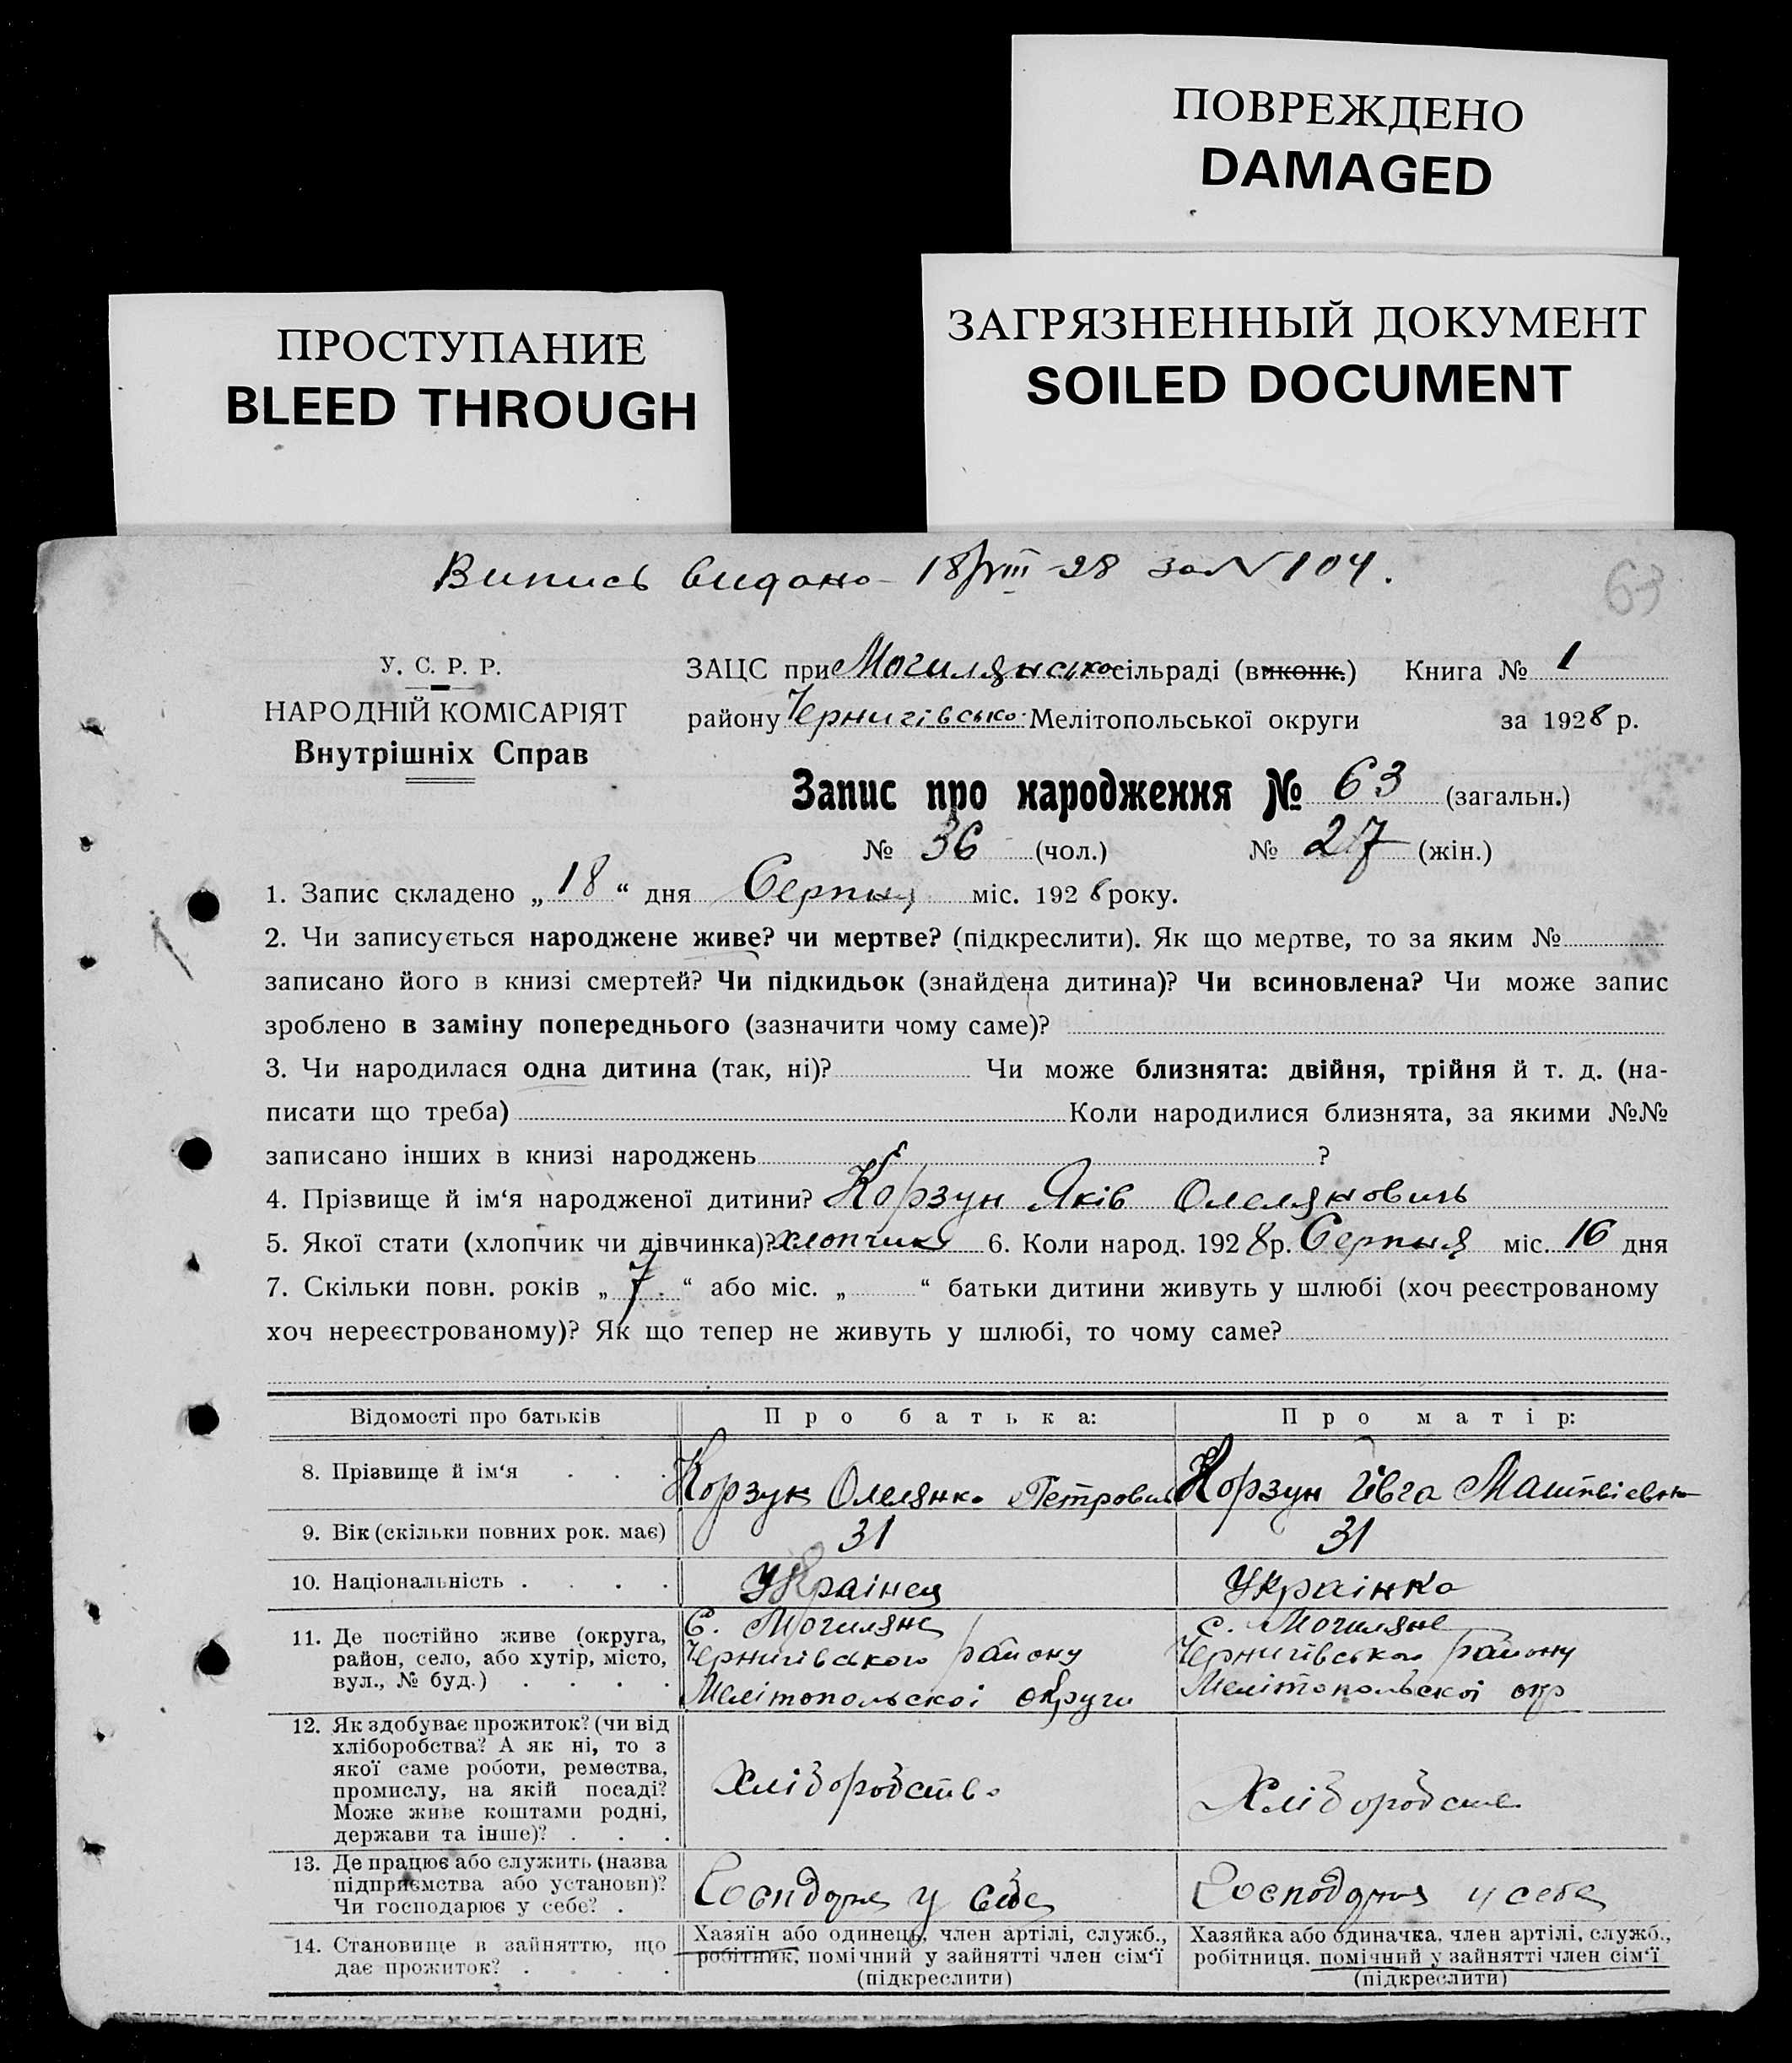 ПОВРЕЖДЕНО
DAMAGED
ПРОСТУПАНИЕ
BLEED THROUGH
ЗАГРЯЗНЕННЫЙ ДОКУМЕНТ
SOILED DOCUMENT
Випись видано 18/VIII-28 за N 104.
63
У. С. Р. Р.
НАРОДНІЙ КОМІСАРІЯТ
Внутрішніх Справ
ЗАЦС при Могилянсько сільраді (виконк.) Книга № 1
району Чернигівсько Мелітопольської округи за 1928 р.
Запис про народження № 63 (загальн.)
№ 36 (чол.) № 27 (жін.)
1. Запис складено „ 18 “ дня Серпня міс. 1928 року.
2. Чи записується народжене живе? чи мертве? (підкреслити). Як що мертве, то за яким №
записано його в книзі смертей? Чи підкидьок (знайдена дитина)? Чи всиновлена? Чи може запис
зроблено в заміну попереднього (зазначити чому саме)?
3. Чи народилася одна дитина (так, ні)? Чи може близнята: двійня, трійня й т. д. (на-
писати що треба) Коли народилися близнята, за якими №№
записано інших в книзі народжень ?
4. Прізвище й ім‘я народженої дитини? Корзун Яків Омелянович
5. Якої стати (хлопчик чи дівчинка)? хлопчик 6. Коли народ. 1928 р. Серпня міс. 16 дня
7. Скільки повн. років „ 7 “ або міс. „ “ батьки дитини живуть у шлюбі (хоч реєстрованому
хоч нереєстрованому)? Як що тепер не живуть у шлюбі, то чому саме?
Відомості про батьків Про батька: Про матір:
8. Прізвище й ім‘я . . . Корзун Омелянко Петрович Корзун Ївга Матвієвна
9. Вік (скільки повних рок. має) 31 31
10. Національність . . . . Українец Українка
11. Де постійно живе (округа,
район, село, або хутір, місто,
вул., № буд.) . . . .
С. Могиляне
Чернигівського району
Мелітопольскоі округи
с. Могиляне
Чернигівського району
Мелітопольскоі окр
12. Як здобуває прожиток? (чи від
хліборобства? А як ні, то з
якої саме роботи, ремества,
промислу, на якій посаді?
Може живе коштами родні,
держави та інше)? . . .
Хліборобство
Хліборобств
13. Де працює або служить (назва
підприємства або установи)?
Чи господарює у себе? .
у себе
у себе
14. Становище в зайняттю, що
дає прожиток? . . . .
Хазяїн або одинець, член артілі, служб.,
робітник, помічний у зайнятті член сім‘ї
(підкреслити)
Хазяйка або одиначка, член артілі, служб.,
робітниця, помічний у зайнятті член сім‘ї
(підкреслити)